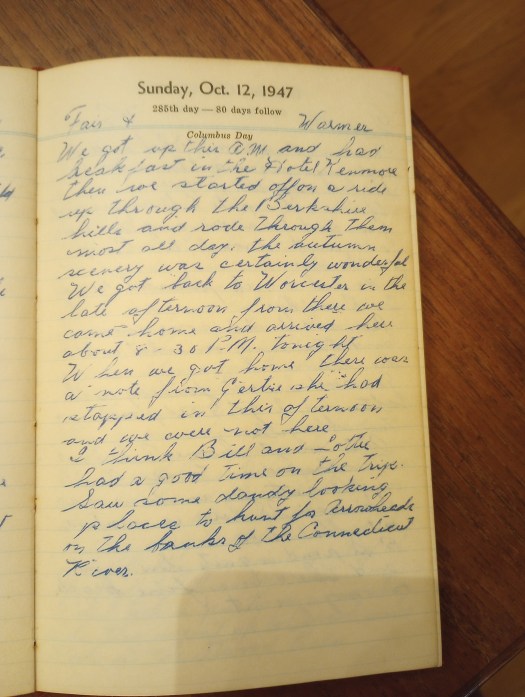 Sunday, Oct. 12, 1947
285th day — 80 days follow
Columbus Day
Fair & Warmer
We got up this A.M and had
breakfast in the Hotel Kenmore
then we started off on a ride
up through the Berkshire
hills and rode through them
most all day. the autumn
scenery was certainly wonderful
We got back to Worcester in the
late afternoon from there we
came home and arrived here
about 8-30 P.M. tonight
When we got home there was
a note from Gertie she had
stopped in this afternoon
and we were not here
I think Bill and Lottie
had a good time on the trip.
Saw some dandy looking
places to hunt for Arrowheads
on the banks of the Connecticut
River.